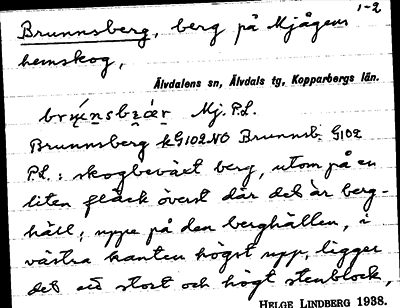 1-2
Brunnsberg, berg på Mjågens
hemskog,
Älvdalens sn, Älvdals tg, Kopparbergs län.
Mj. P.L.
Brunnsberg kG102NO Brunnsb. G102
P.L.: skogbeväxt berg, utom på en
liten fläck överst där det är berg-
häll; uppe på den berghällen, i
västra kanten högst upp, ligger
det ett stort och högt stenblock,
HELGE LINDBERG 1938.